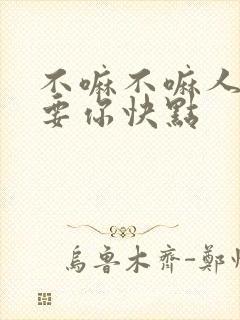 不嘛不嘛人
要你快點
烏魯木齊-鄭